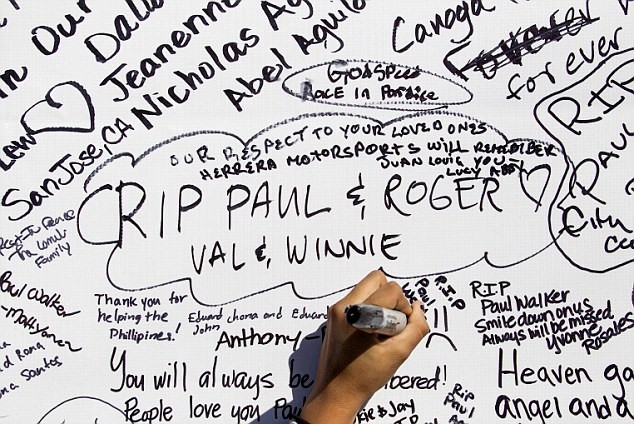 in Our
Dalla
Jeanenne
Nicholas Ag
Abel Aguila
Canoga
Forever
forever
GODSPEED
RACE IN Paradise
Lew
San Jose, CA
OUR RESPECT TO YOUR LOVED ONES
HERRERA MOTORSPORTS WILL REMEMBER
JUAN LOUIS YOU
LUCY ABBY
RIP PAUL & ROGER
VAL & WINNIE
RIP
PAUL
City
Rest In Peace
The
Family
Paul Walker
Thank you for
helping the
Phillipines!
Eduard chona and Eduard
John
Anthony
RIP
Paul
RIP
Paul Walker
Smile down on us
Always will be missed
Yvonne
Rosales
Rona
Santos
You will always be
bered!
People love you Paul
& Jay
Rip
Paul
Heaven ga
angel and a